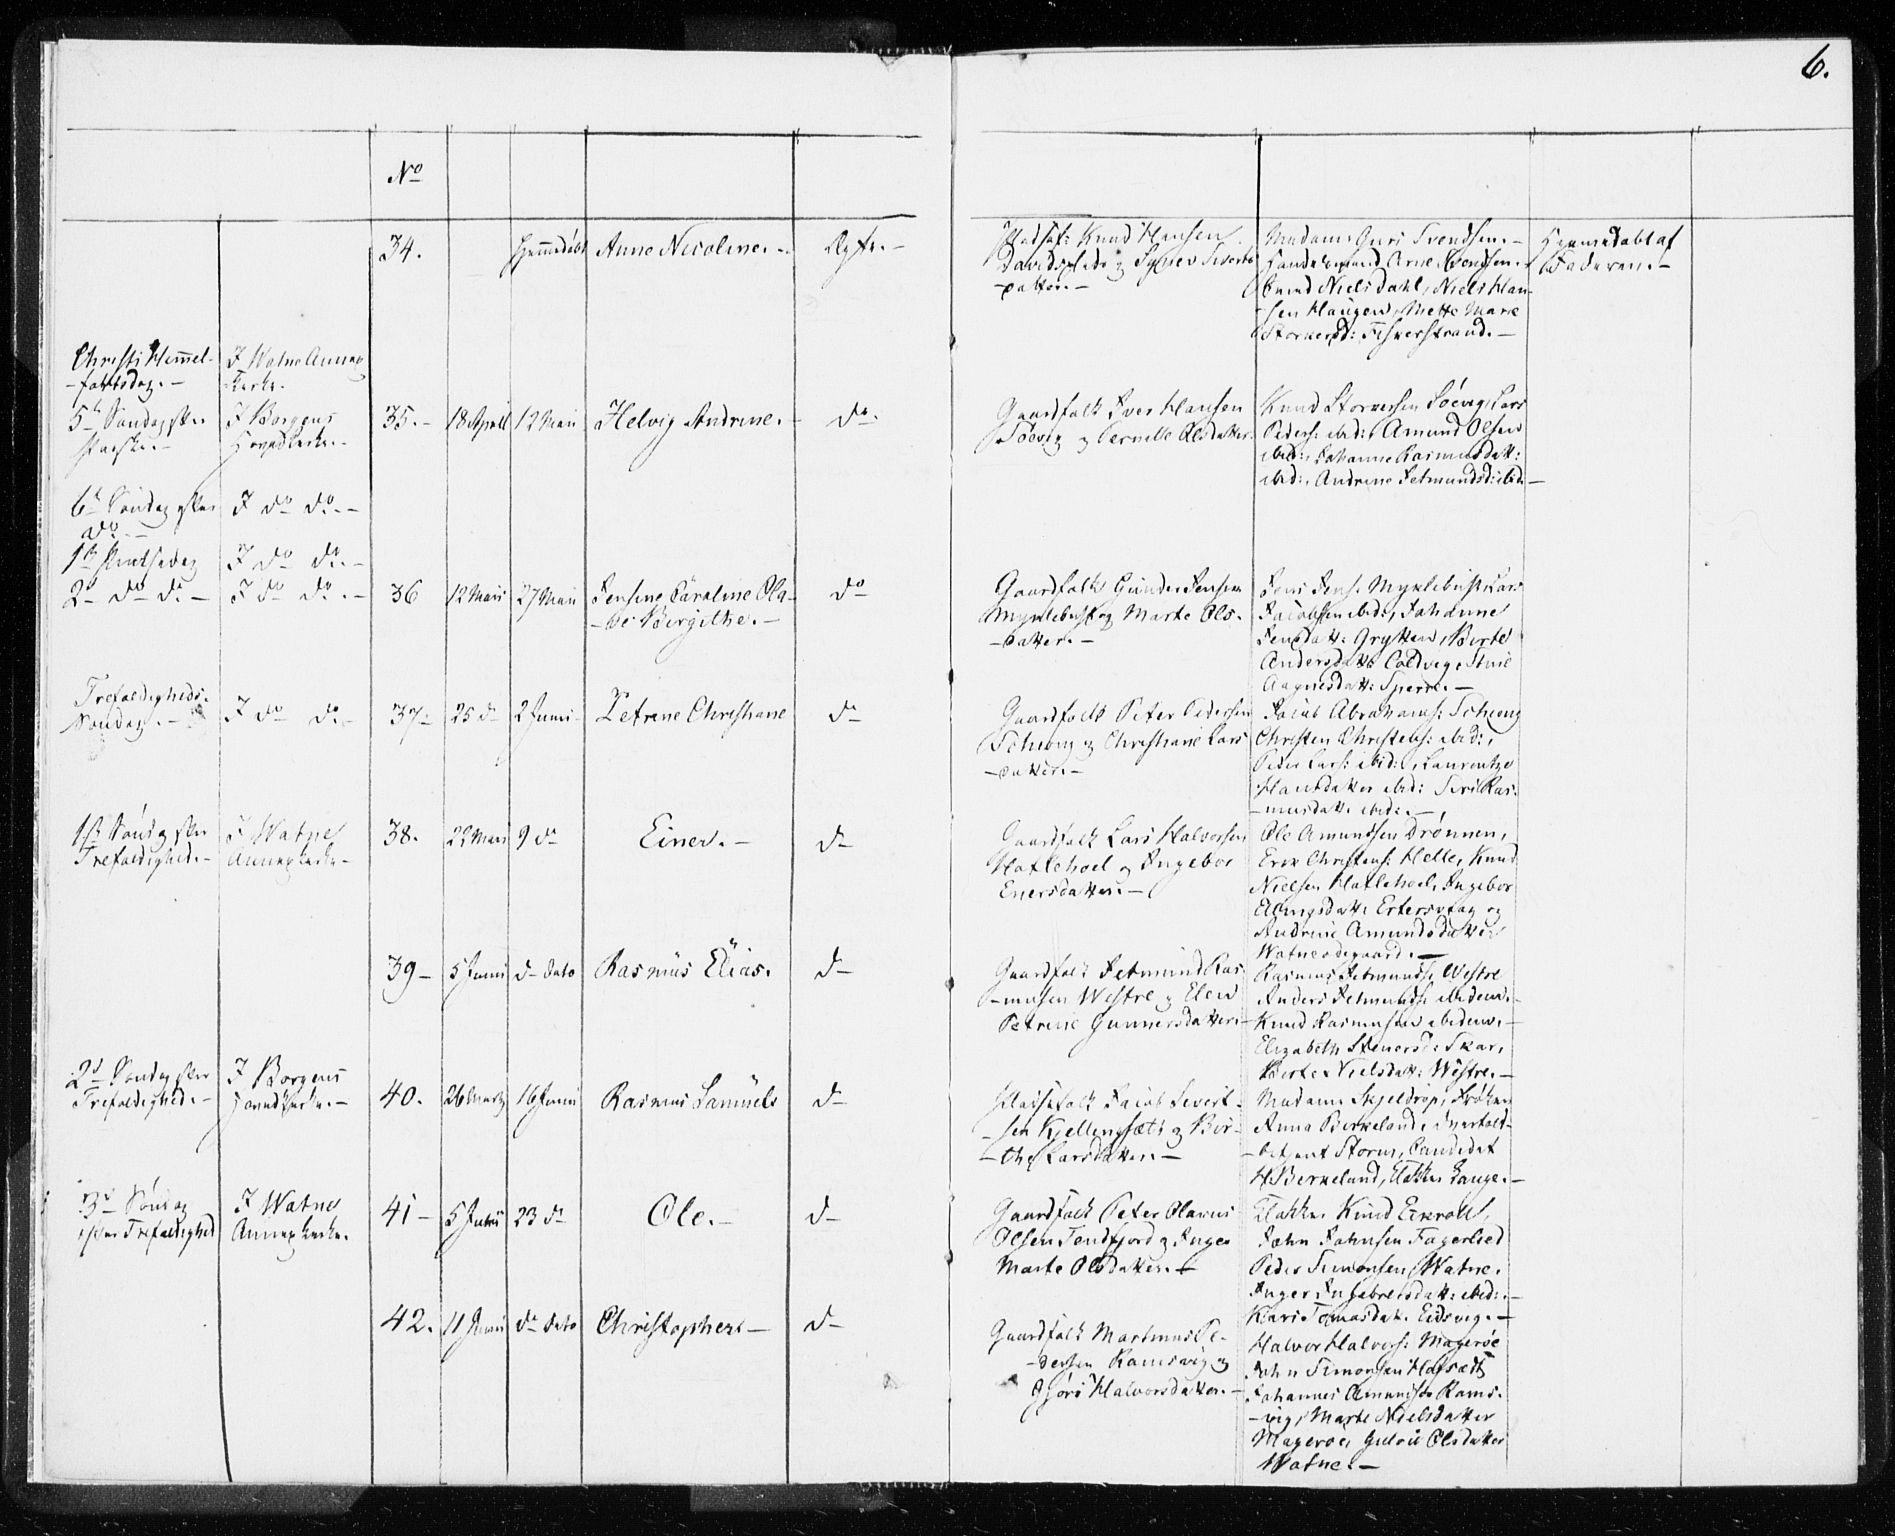 6.
No
34.
Hjemedöbt
Anne Nicoline. -
Ægte. -
Pladsf: Knud Hansen
Davidsplads og Synev Siverts
-datter. -
Madame Guri Svendsen. -
Handelsmand Arne Svendsen.
Knud Niels Dahl, Niels Han-
-sen Haugen, Mette Marie
Storkersd: Fiskerstrand. -
Hjemedöbt af
Faderen. -
Christi Himel-
-fartsdag. -
I Watne Annex
Kirke.
5te Söndag efter
Paaske. -
I Borgens
Hovedkirke. -
35. -
18 April
12 Mai
Helvig Andrine. -
do
Gaardfolk Iver Hansen
Söevig og Pernille Olsdatter
Knud Storkersen Söevig, Lars
Peders: ibid:, Amund Olsen
ibid:, Johanne Rasmusdatt:
ibid:, Andrine Jetmundsd: ibid -
6te Söndag efter
do -
I do do. -
1ste Pintsedag
I do do. -
2d do do -
I do do. -
36
12 Mai
27 Mai
Jensine Caroline Ola-
-ve Birgithe. -
do
Gaardfolk Gunder Jensen
Myklebust og Marte Ols-
-datter. -
Jens Jens: Myklebust, Lars
Jacobsen ibid:, Johanne
Jensdatt: Grytten, Berte
Andersdatt:
Aagnesdatt: Sperre. -
Trefoldigheds-
Söndag. -
I do do. -
37 -
25 do
2 Juni
Petrine Christiane
do
Gaardfolk Peter Pedersen
Schiong og Christiane Lars
-datter. -
Jacob Abrahams: Schiong
Christen Christens: ibid:,
Peder Lars: ibid:, Laurentze
Hansdatter ibid: Siri Ras-
-musdatt: ibid: -
1ste Sönd. efter
Trefoldighed. -
I Watne
Annexkirke -
38.
22 Mai
9 do
Einer. -
do
Gaardfolk Lars Halvorsen
Hatlehoel og Ingebor
Enersdatter. -
Ole Amundsen Drönnen,
Erik Christens: Helle, Knud
Nielsen Hatlehoel, Ingebor
Ellingsdatt: og
Andrine Amundsdatter
Watneödegaard. -
39 -
5 Juni
do dato
Rasmus Elias.
do
Gaardfolk Jetmund Ras-
-musen Westre og Elen
Petrine Gunnersdatter. -
Rasmus Jetmunds: Westre
Anders Jetmunds: ibidem. -
Knud Rasmusen ibidem. -
Elizabeth Stenersd: Skar,
Berte Nielsdatt: Westre. -
2d Söndag efter
Trefoldighed. -
I Borgens
Hovedkirke. -
40.
26 Marts
16 Juni
Rasmus Samuels
do
Jacob Sivert-
-sen Kjellingsæth og Ber-
-the Larsdatter. -
Madame Skjeldrop, Fröken
Anna Birkeland,
-betjent Storm, Candidat
H. Birkeland, Klokker Lange. -
3d Söndag
efter Trefoldighed
I Watne
Annexkirke.
41 -
5 Juni
23 do
Ole. -
do
Gaardfolk Peter Olavus
Olsen Tendfjord og Inger
Marte Olsdatter. -
Klokker Knud
John Johnsen Fagerlied
Peder Simonsen Watne,
Inger Ingebretsdatt: ibid: -
Kari Tomasdat. Eidsvig. -
42.
11 Juni
do dato
Christopher -
do
Gaardfolk Martinus Pe-
-dersen Ramsvig og
Gjöri Halvorsdatter. -
Halvor Halvors: Magerøe
John Simonsen Hofsæth
Johannes Amundsen Rams-
-vig, Marte Nielsdatter
Mageroe, Olsdatter
Watne. -